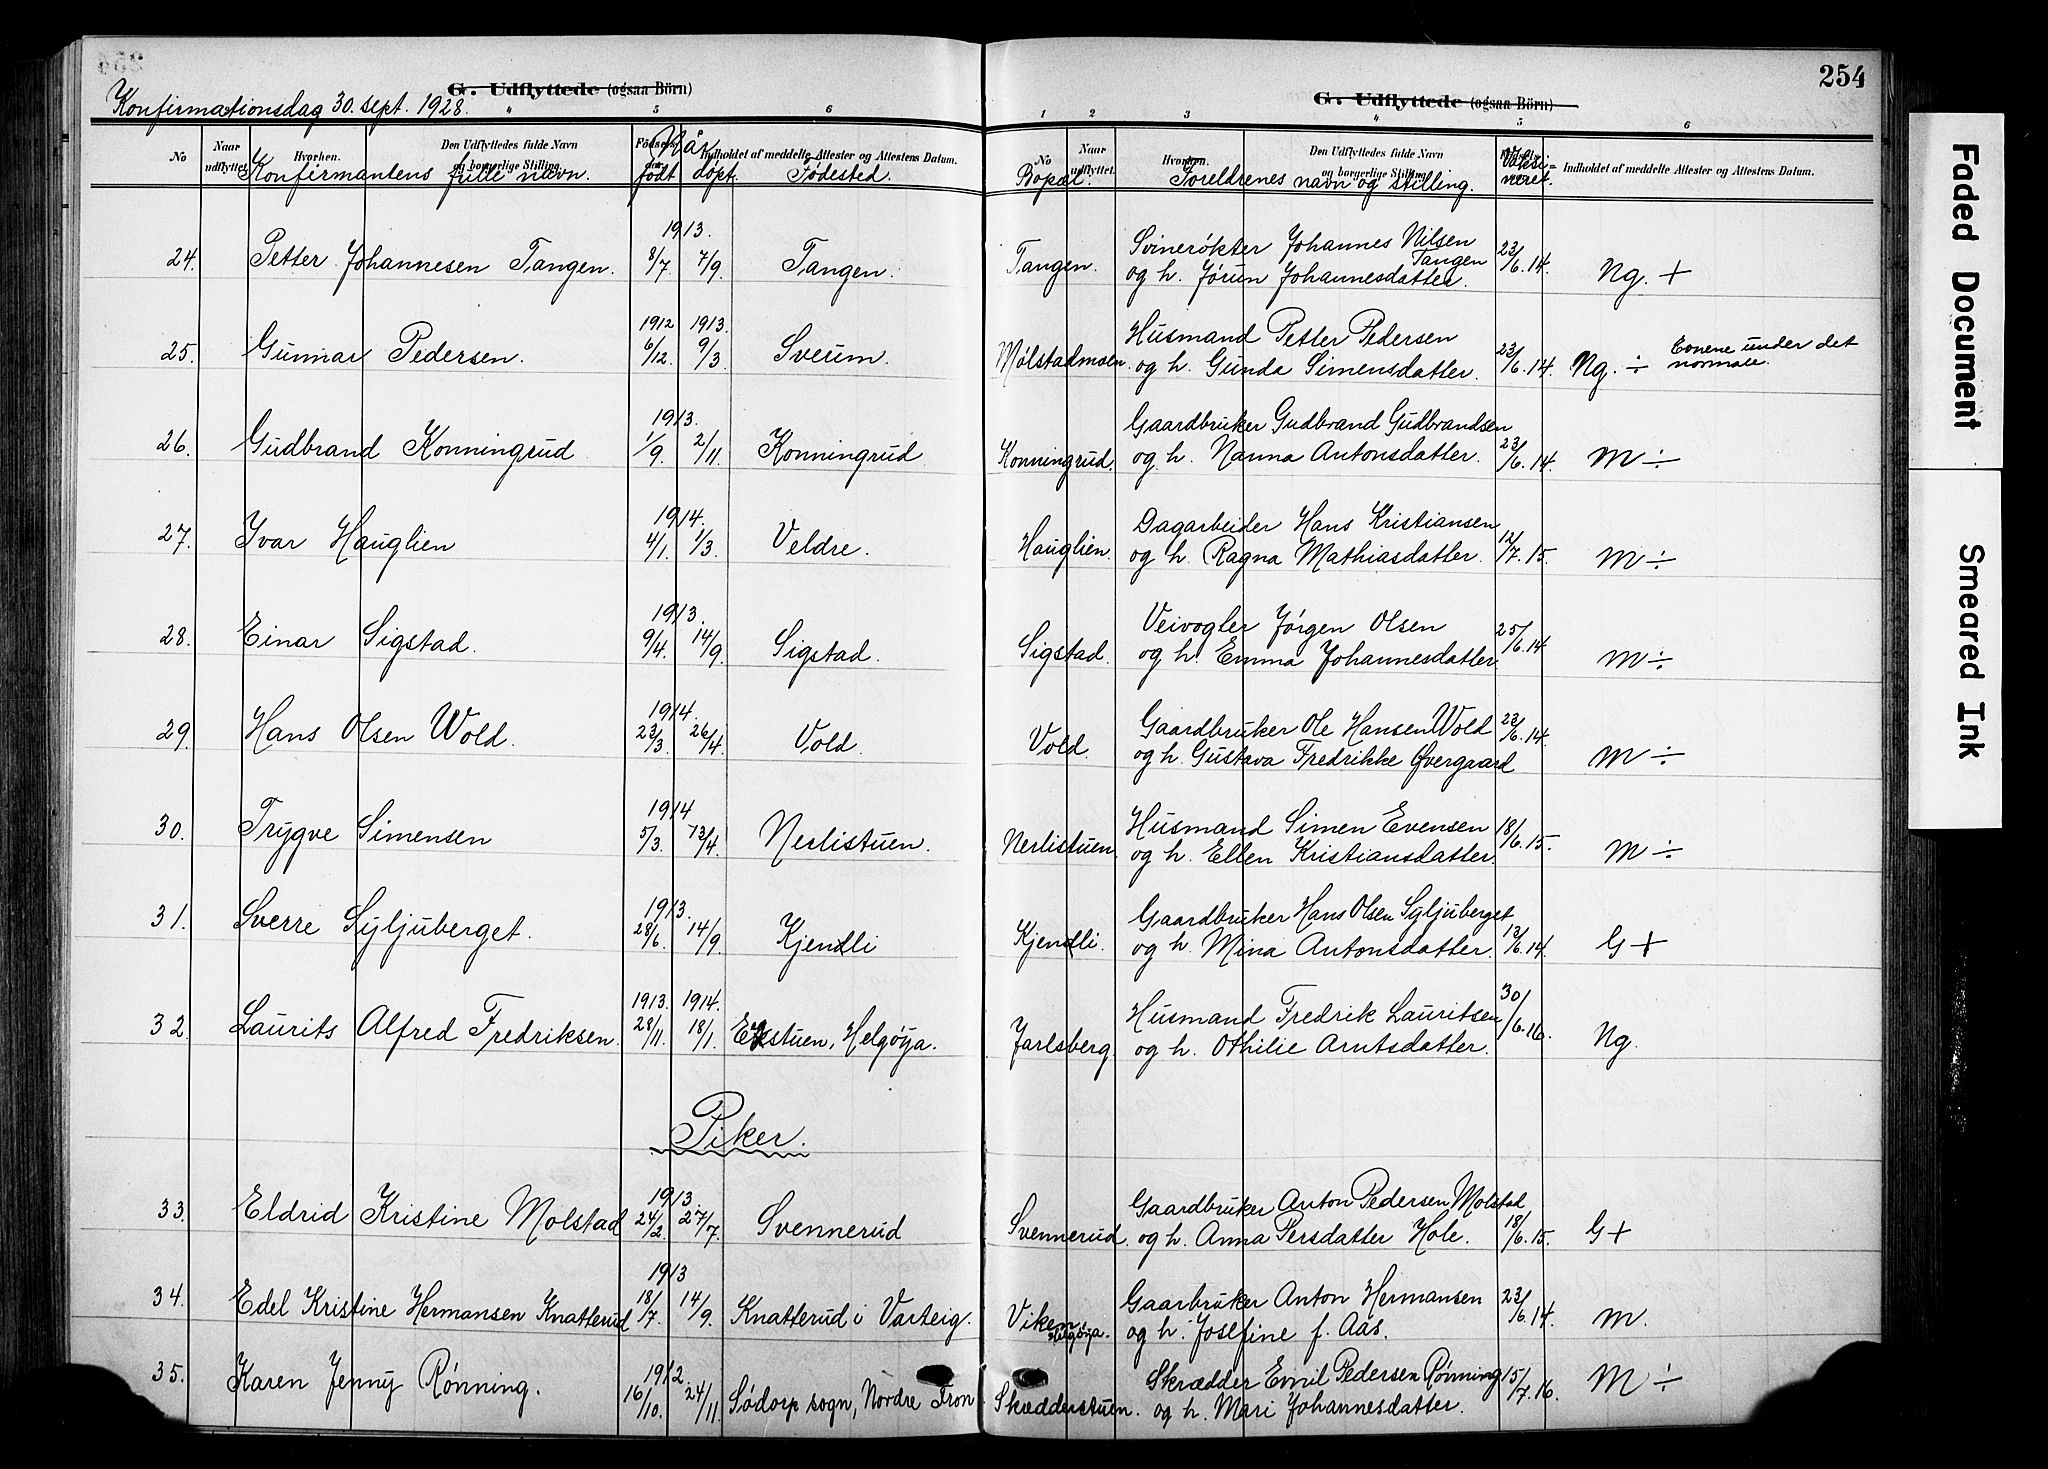 254
G. Udflyttede (ogsaa Börn)
Konfirmationsdag 30. sept. 1928.
4 5 6
No Naar udflyttet. Hvorhen. Den Udflyttedes fulde Navn og borgerlige Stilling. Fødsels- Indholdet af meddelte Attester og Attestens Datum.
Konfirmantens fulle navn. Når født døpt. Fødested.
24. Petter Johannesen Tangen. 1913. 8/7. 7/9. Tangen.
25. Gunnar Pedersen. 1912 6/12. 1913. 9/3 Sveum.
26. Gudbrand Konningrud 1913. 1/9. 2/11. Konningrud.
27. Ivar Hauglien 1914. 4/1. 1/3. Veldre.
28. Einar Sigstad. 1913. 9/4. 14/9. Sigstad.
29. Hans Olsen Wold. 1914. 23/3. 26/4. Vold.
30. Trygve Simensen 1914 5/3. 13/4. Nerlistuen.
31. Sverre Syljuberget. 1913. 28/6. 14/9. Kjendli
32. Laurits Alfred Fredriksen. 1913. 28/11. 1914. 18/1. Ekstuen, Helgøya.
Piker.
33. Eldrid Kristine Molstad 1913. 24/2. 27/7. Svennerud
34. Edel Kristine Hermansen Knatterud 1913 18/7. 14/9. Knatterud i Varteig.
35. Karen Jenny Rønning. 1912. 16/10. 24/11. Sødorp sogn, Nordre Fron
G. Udflyttede (ogsaa Börn)
1 2 3 4 5 6
No Naar udflyttet. Hvorhen. Den Udflyttedes fulde Navn og borgerlige Stilling. Indholdet af meddelte Attester og Attestens Datum.
Bopæl. Foreldrenes navn og stilling. Vaksineret.
Tangen. Svinerøkter Johannes Nilsen Tangen
og h. Jørun Johannesdatter. 23/6.14. Ng. +
Mølstadmoen. Husmand Petter Pedersen
og h. Gunda Simensdatter. 23/6.14. Ng. ÷ Evnene under det normale.
Konningrud. Gaardbruker Gudbrand Gudbrandsen
og h. Nanna Antonsdatter. 23/6.14. M ÷
Hauglien. Dagarbeider Hans Kristiansen
og h. Ragna Mathiasdatter. 12/7.15. M ÷
Sigstad. Veivogter Jørgen Olsen
og h. Emma Johannesdatter. 25/6.14 M ÷
Vold. Gaardbruker Ole Hansen Wold
og h. Gustava Fredrikke Øvergaard 23/6.14. M ÷
Nerlistuen. Husmand Simen Evensen
og h. Ellen Kristiansdatter. 18/6.15. M ÷
Kjendli. Gaardbruker Hans Olsen Syljuberget
og h. Mina Antonsdatter. 13/6.14. G +
Jarlsberg. Husmand Fredrik Lauritsen
og h. Othilie Arntsdatter. 30/6.16. Ng.
Svennerud. Gaardbruker Anton Pedersen Molstad
og h. Anna Persdatter Hole. 18/6.15. G +
Viken, Helgøya. Gaarbruker Anton Hermansen
og h. Josefine f. Aas. 23/6.14. M.
Skredderstuen. Skrædder Emil Pedersen Rønning
og h. Mari Johannesdatter. 15/7.16. M ÷
Faded Document
Smeared Ink